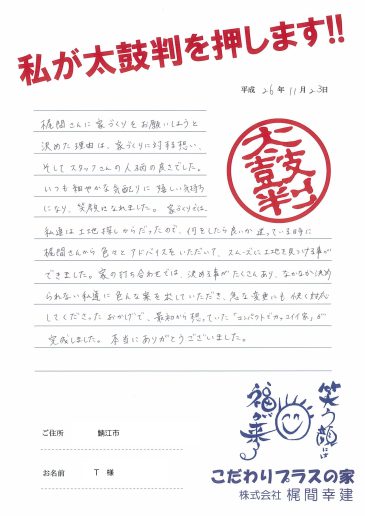 私が太鼓判を押します!!
平成 26年 11月 23日
梶間さんに家づくりをお願いしようと
決めた理由は、家づくりに対する想い、
そしてスタッフさんの人柄の良さでした。
いつも細やかな気配りに嬉しい気持ち
になり、笑顔になれました。家づくりでは、
私達は土地探しからだったので、何をしたら良いか迷っている時に
梶間さんから色々とアドバイスをいただいて、スムーズに土地を見つける事が
できました。家の打ち合わせでは、決める事がたくさんあり、なかなか決め
られない私達に色んな案を出していただき、急な変更にも快く対応
してくださったおかげで、最初から想っていた「コンパクトでカッコイイ家」が
完成しました。本当にありがとうございました。
太鼓判
ご住所 鯖江市
お名前 T 様
笑う顔には
福が来る
こだわりプラスの家
株式会社 梶間幸建